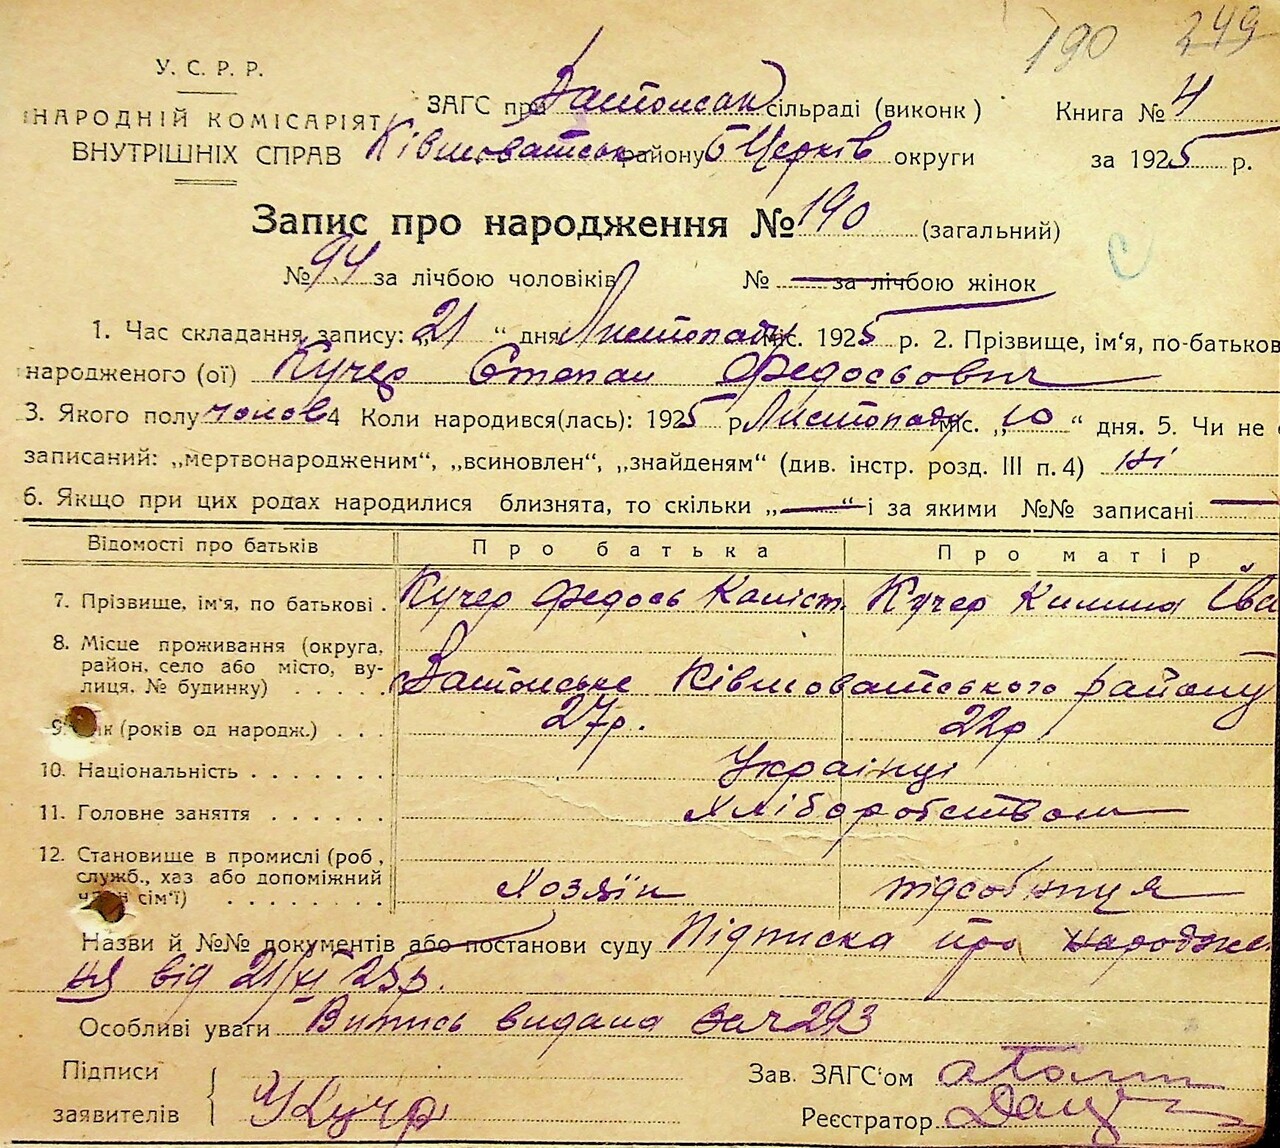 190 249
У. С. Р. Р.
НАРОДНІЙ КОМІСАРІЯТ
ВНУТРІШНІХ СПРАВ
ЗАГС при сільраді (виконк)
Ківшоватськ району Б Церків округи
Книга № 4
за 1925 р.
Запис про народження № 190 (загальний)
№ 94 за лічбою чоловіків № за лічбою жінок
1. Час складання запису: „21 “ дня Листопада міс. 1925 р. 2. Прізвище, ім‘я, по-батьков
народженого (ої) Кучер Степан Федосьович
3. Якого полу чолов 4 Коли народився(лась): 1925 р Листопаду міс. „10 “ дня. 5. Чи не
записаний: „мертвонародженим“, „всиновлен“, „знайденям“ (див. інстр. розд. III п. 4) ні
6. Якщо при цих родах народилися близнята, то скільки „—“ і за якими №№ записані —
Відомості про батьків Про батька Про матір
7. Прізвище, ім‘я, по батькові . Кучер Федось Каліст. Кучер Килина Іва
8. Місце проживання (округа,
район, село або місто, ву-
лиця, № будинку) . . . . . Ківшоватського району
9. ік (років од народж.) . . . 27р. 22р
10. Національність . . . . . . . Українці
11. Головне заняття . . . . . . Хліборобством
12. Становище в промислі (роб,
служб., хаз або допоміжний
член сім‘ї) . . . . . . . . Хозяїн підсобниця
Назви й №№ документів або постанови суду Підписка про народже
ня від 21/XI 25р.
Особливі уваги Випись видана за ч 293
Підписи
заявителів
Кучер
Зав. ЗАГС‘ом
Реєстратор